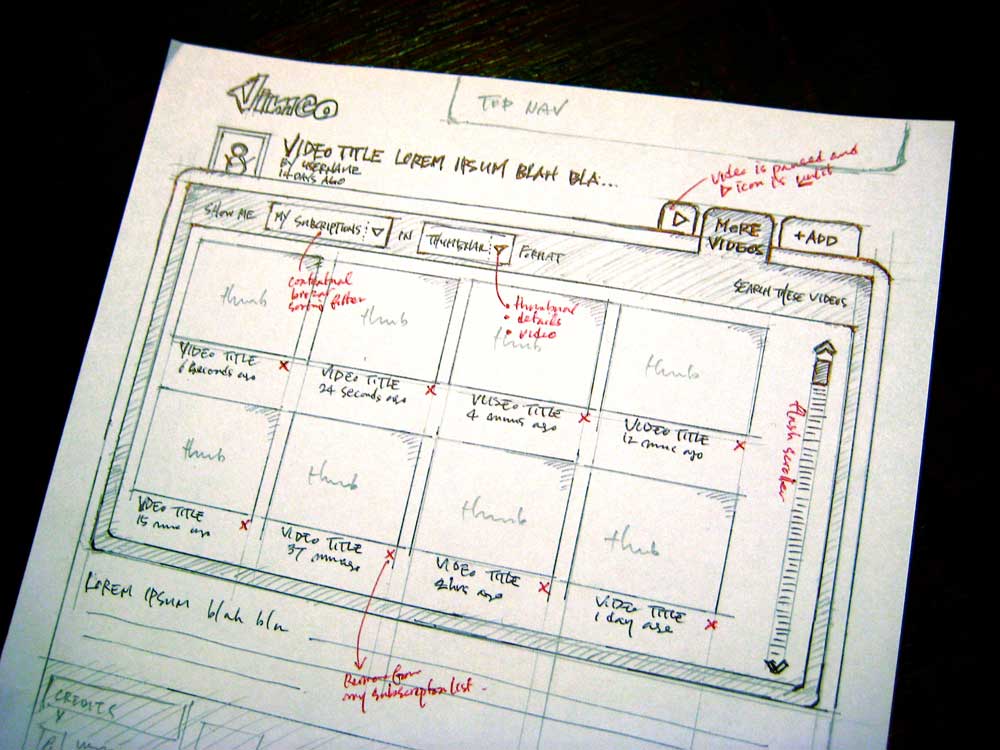 vimeo
TOP NAV
VIDEO TITLE LOREM IPSUM BLAH BLA...
BY USERNAME
14 DAYS AGO
video is paused and
▷ icon is
MORE
VIDEOS
+ADD
SHOW ME
MY SUBSCRIPTIONS
IN
THUMBNAIL
FORMAT
SEARCH THESE VIDEOS
contextual
sorting filter
• thumbnail
• details
• video
thumb
thumb
thumb
thumb
VIDEO TITLE
6 seconds ago
X
VIDEO TITLE
24 seconds ago
X
VIDEO TITLE
4 mins ago
X
VIDEO TITLE
12 mins ago
X
flash scroller
thumb
thumb
thumb
thumb
VIDEO TITLE
15 mins ago
X
VIDEO TITLE
37 mins ago
X
VIDEO TITLE
2 hrs ago
X
VIDEO TITLE
1 day ago
X
LOREM IPSUM blah bla
Remove from
my subscription list.
CREDITS